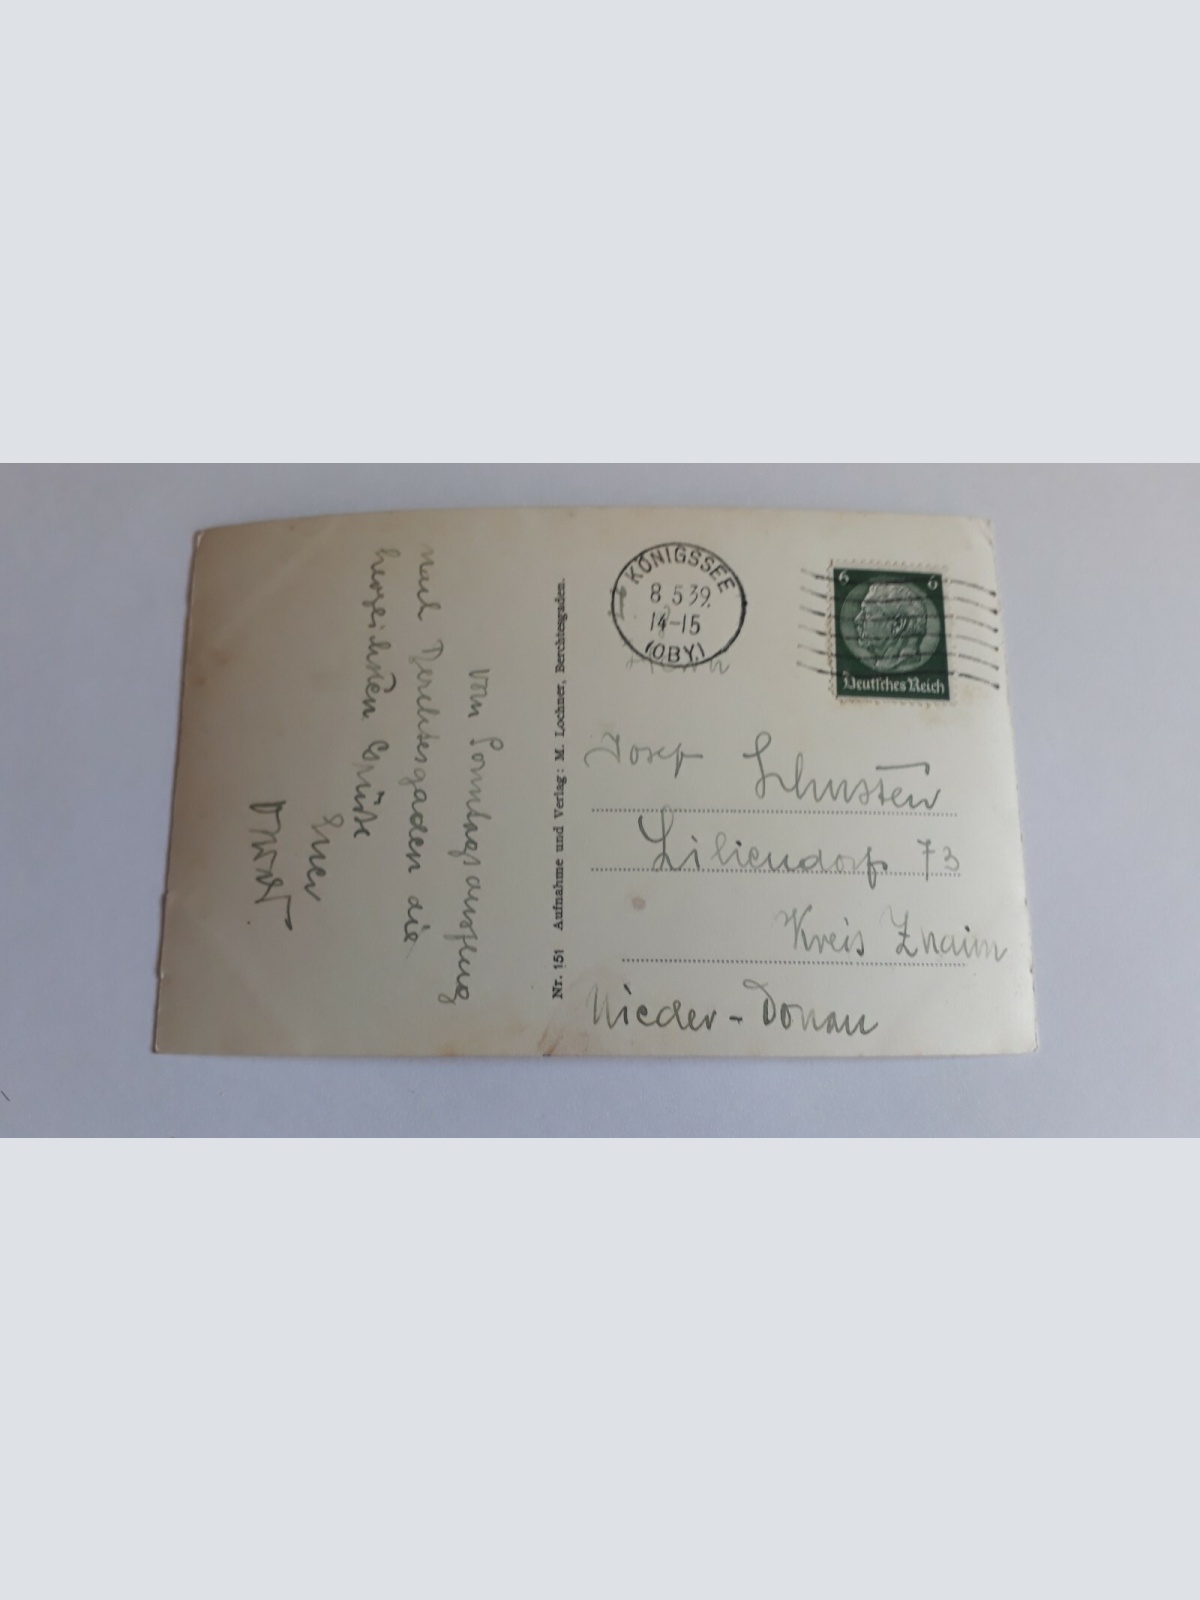 vom Sonntagsausflug
nach Berchtesgaden die
herzlichsten Grüße
Euer
Nr. 151 Aufnahme und Verlag: M. Lochner, Berchtesgaden.
KÖNIGSSEE
8.5.39.
14-15
(OBY.)
6 6
Deutsches Reich
Herrn
Josef
Liliendorf 73
Kreis Znaim
Nieder-Donau